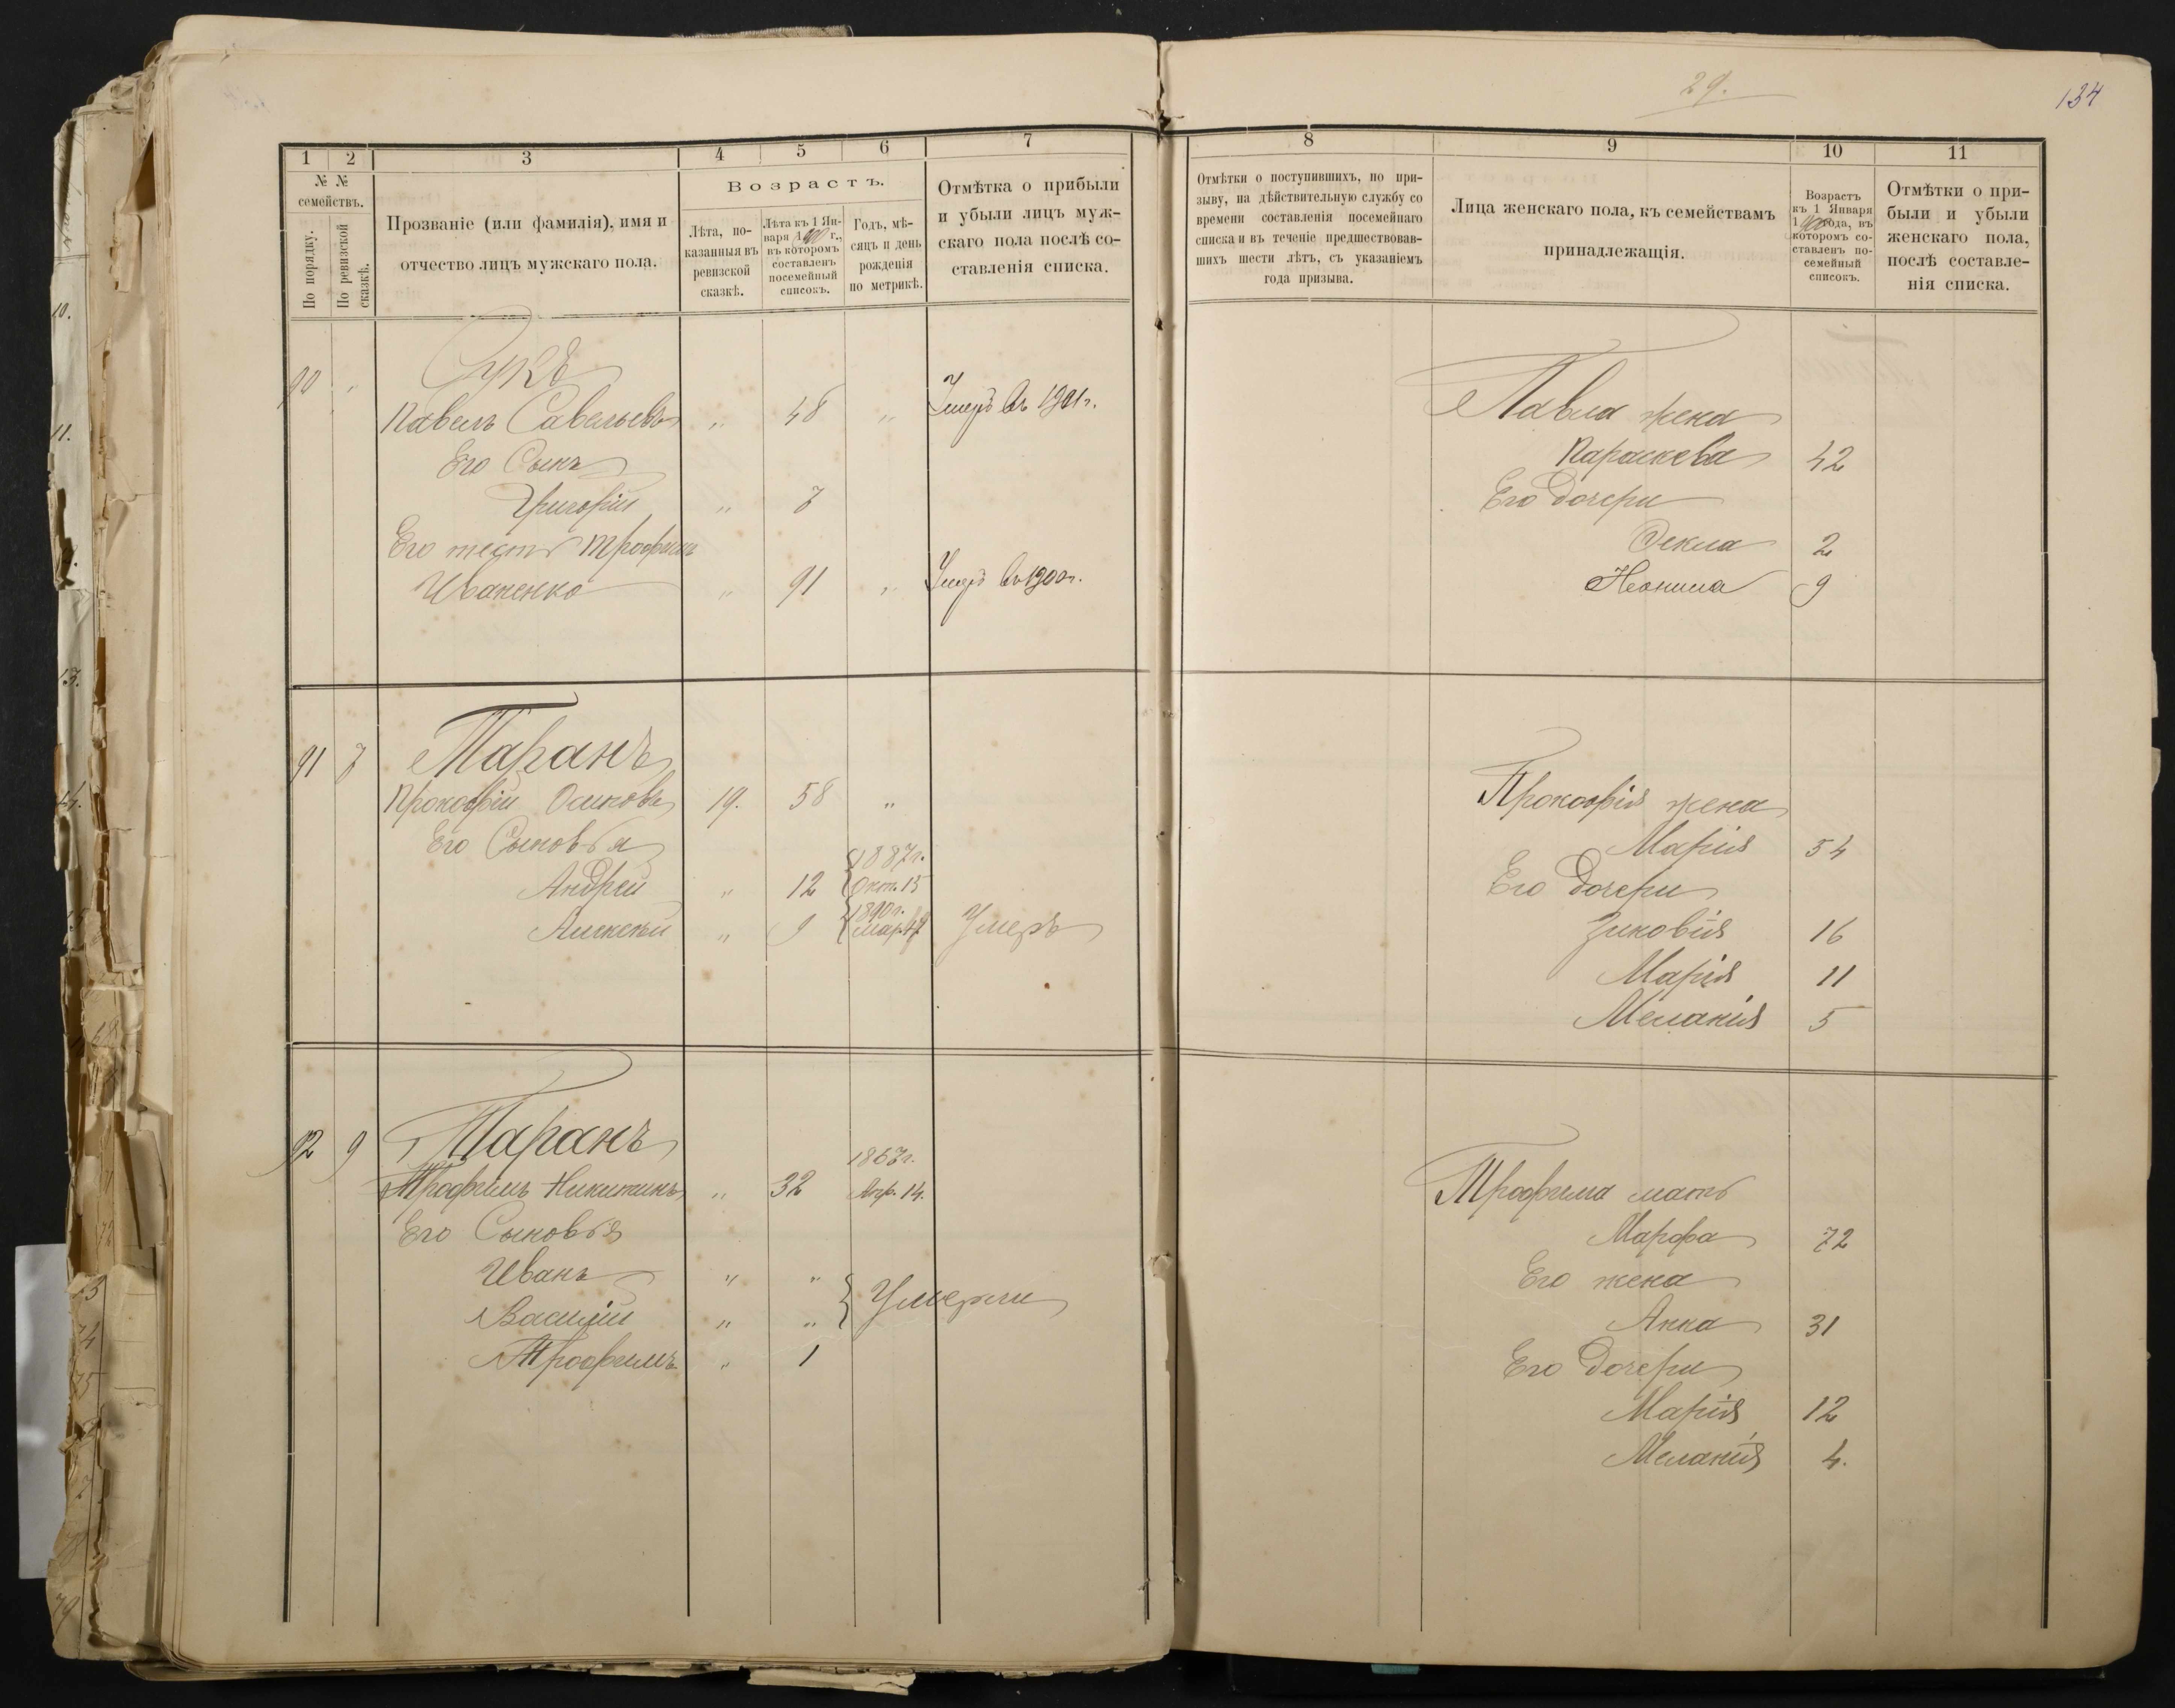 29.
134
1 2 3 4 5 6 7
№ №
семействъ.
По порядку.
По ревизской сказкѣ.
Прозваніе (или фамилія), имя и
отчество лицъ мужскаго пола.
Возрастъ.
Лѣта, по-
казанныя въ
ревизской
сказкѣ.
Лѣта къ 1 Ян-
варя 1900 г.,
въ которомъ
составленъ
посемейный
списокъ.
Годъ, мѣ-
сяцъ и день
рожденія
по метрикѣ.
Отмѣтка о прибыли
и убыли лицъ муж-
скаго пола послѣ со-
ставленія списка.
90 "
Павелъ Савельевъ " 48 " Умеръ въ 1901 г.
Его Сынъ
Григорій " 7
Его тесть Трофимъ
Иваненко " 91 " Умеръ въ 1900 г.
91 7 Таранъ
Прокофій Осиповъ 19. 58 "
Его Сыновья
Андрей " 12 1887 г. Окт. 15
Алексѣй " 9 1890 г. Мар. Умеръ
92 9 Таранъ
Трофимъ Никитинъ " 32 1867 г. Апр. 14.
Его Сыновья
Иванъ " "
Василій " " Умерли
Трофимъ " 1
8 9 10 11
Отмѣтки о поступившихъ, по при-
зыву, на дѣйствительную службу со
времени составленія посемейнаго
списка и въ теченіе предшествовав-
шихъ шести лѣтъ, съ указаніемъ
года призыва.
Лица женскаго пола, къ семействамъ
принадлежащія.
Возрастъ
къ 1 Января
1900 года, въ
которомъ со-
ставленъ по-
семейный
списокъ.
Отмѣтки о при-
были и убыли
женскаго пола,
послѣ составле-
нія списка.
Павла жена
Параскева 42
Его дочери
Ѳекла 2
Неонила 9
Прокофія жена
Марія 54
Его дочери
Зиновія 16
Марія 11
Меланія 5
Трофима мать
Марфа 72
Его жена
Анна 31
Его дочери
Марія 12
Меланія 4.